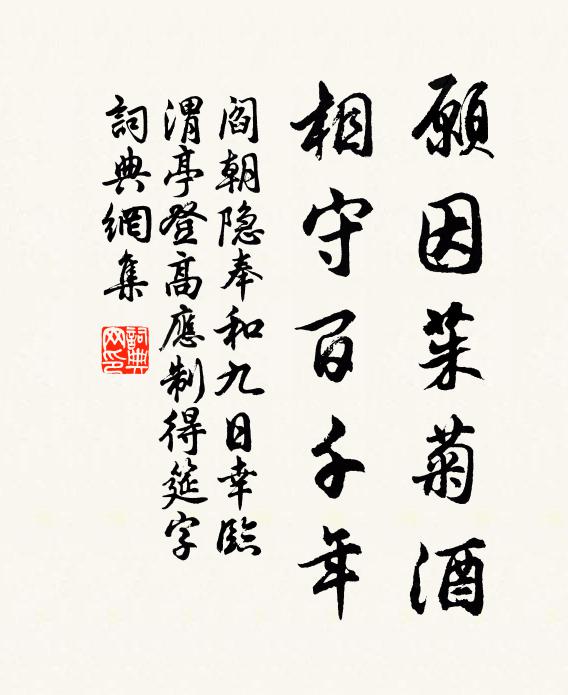 願因茱菊酒
相守百千年
阎朝隐奉和九日幸臨
渭亭登高應制得筵字
詞典網集
詞典网印